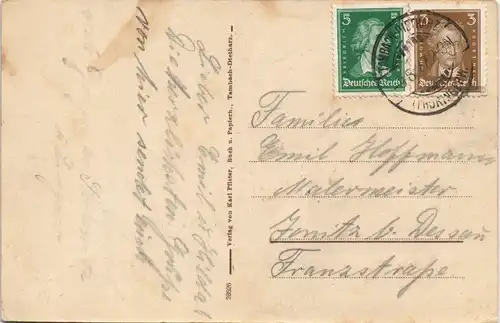 Lieber Emil u. Herda!
Die herzlichsten Grüße
von hier sendet Euch
Verlag von Karl Pfister, Buch u. Papierh., Tambach-Dietharz.
38526
5
Deutsches Reich
3
Deutsches Reich
Familie
Emil Hoffmann
Malermeister
Jonitz b. Dessau
Franzstraße